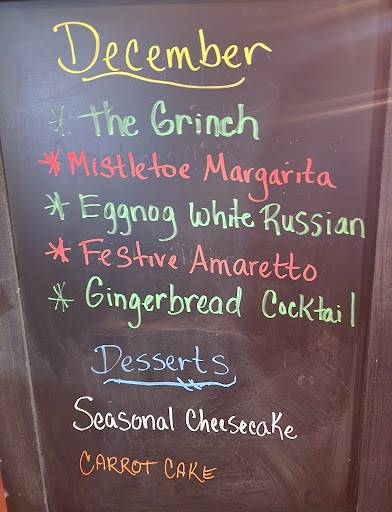 December
* The Grinch
* Mistletoe Margarita
* Eggnog White Russian
* Festive Amaretto
* Gingerbread Cocktail
Desserts
Seasonal Cheesecake
CARROT CAKE